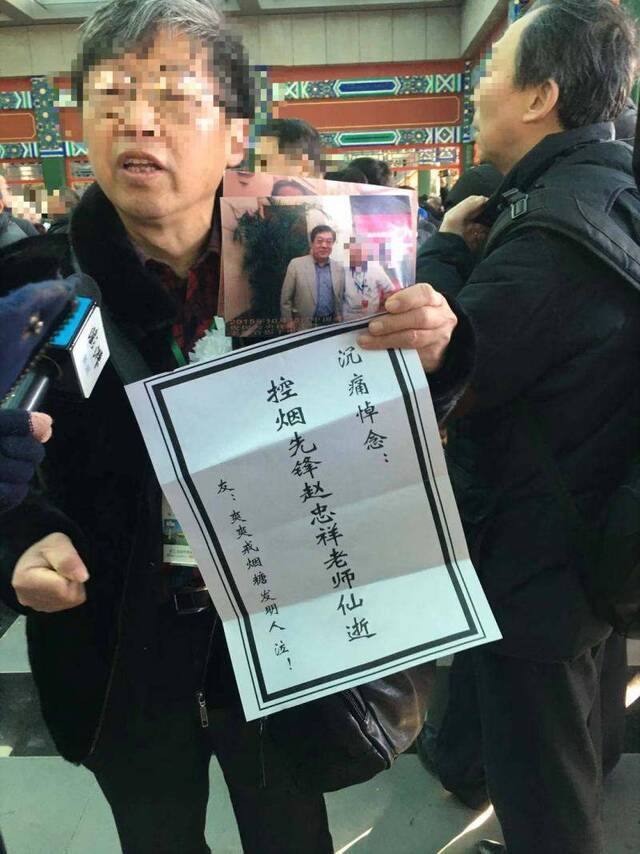 沉痛悼念:
控烟先锋赵忠祥老师仙逝
友:爽爽戒烟糖发明人 泣!